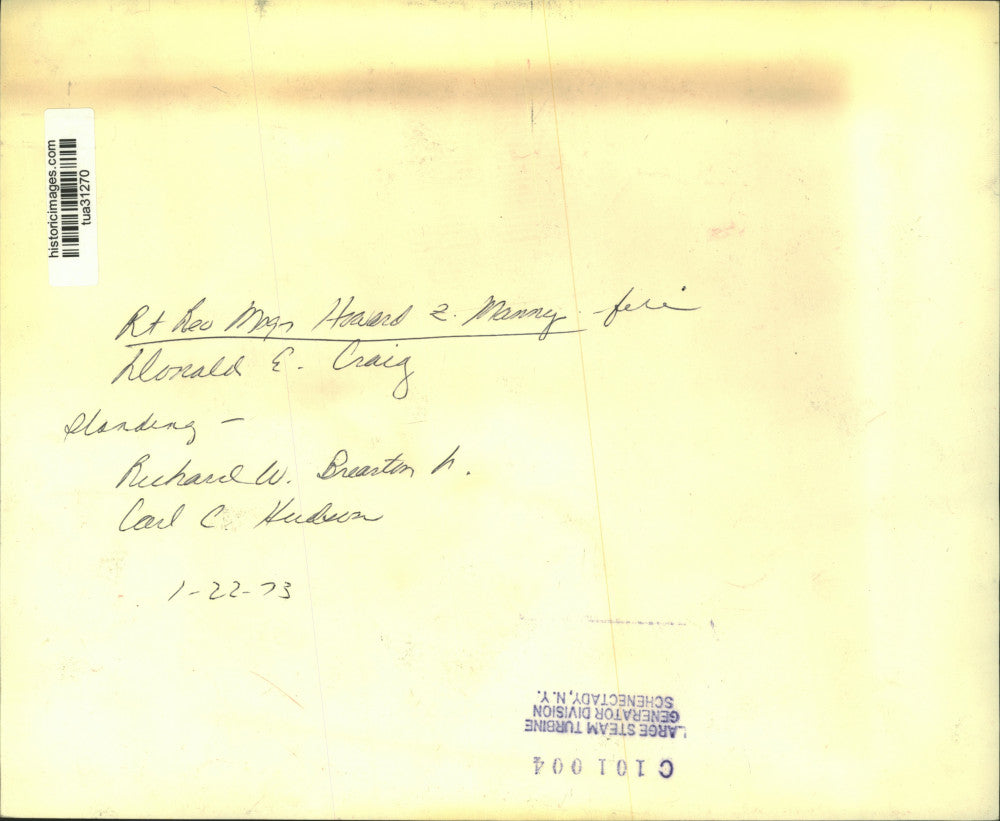 historicimages.com
tua31270
Rt Rev Msgr Howard Manny - file
Donald E. Craig
Standing -
Richard W. Brearton Jr.
Carl C. Hudson
1-22-73
C 101 004
LARGE STEAM TURBINE
GENERATOR DIVISION
SCHENECTADY, N. Y.